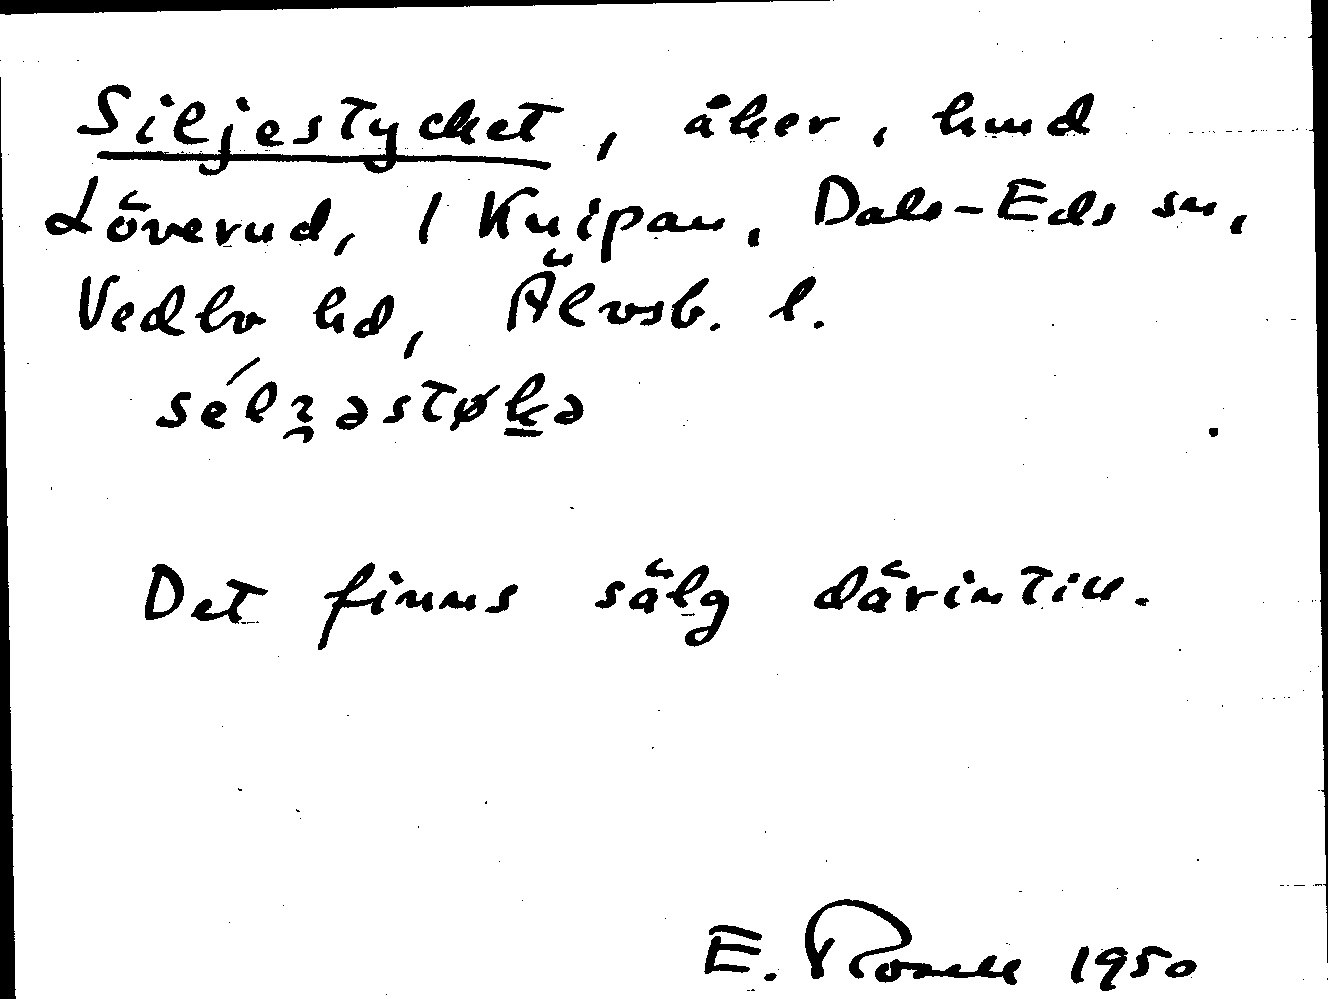 Siljestycket, åker, hmd
Löverud, 1 Knipan, Dals-Eds sn,
Vedbo hd, Älvsb. l.
sélʒəstøkə
Det finns sälg därintill.
E. Rosell 1950